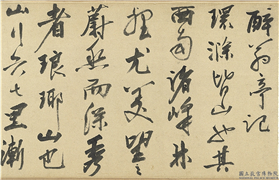 醉翁亭記
環滁皆山也其
西南諸峰林
壑尤美望之
蔚然而深秀
者琅琊山也
山行六七里漸
國立故宮博物院